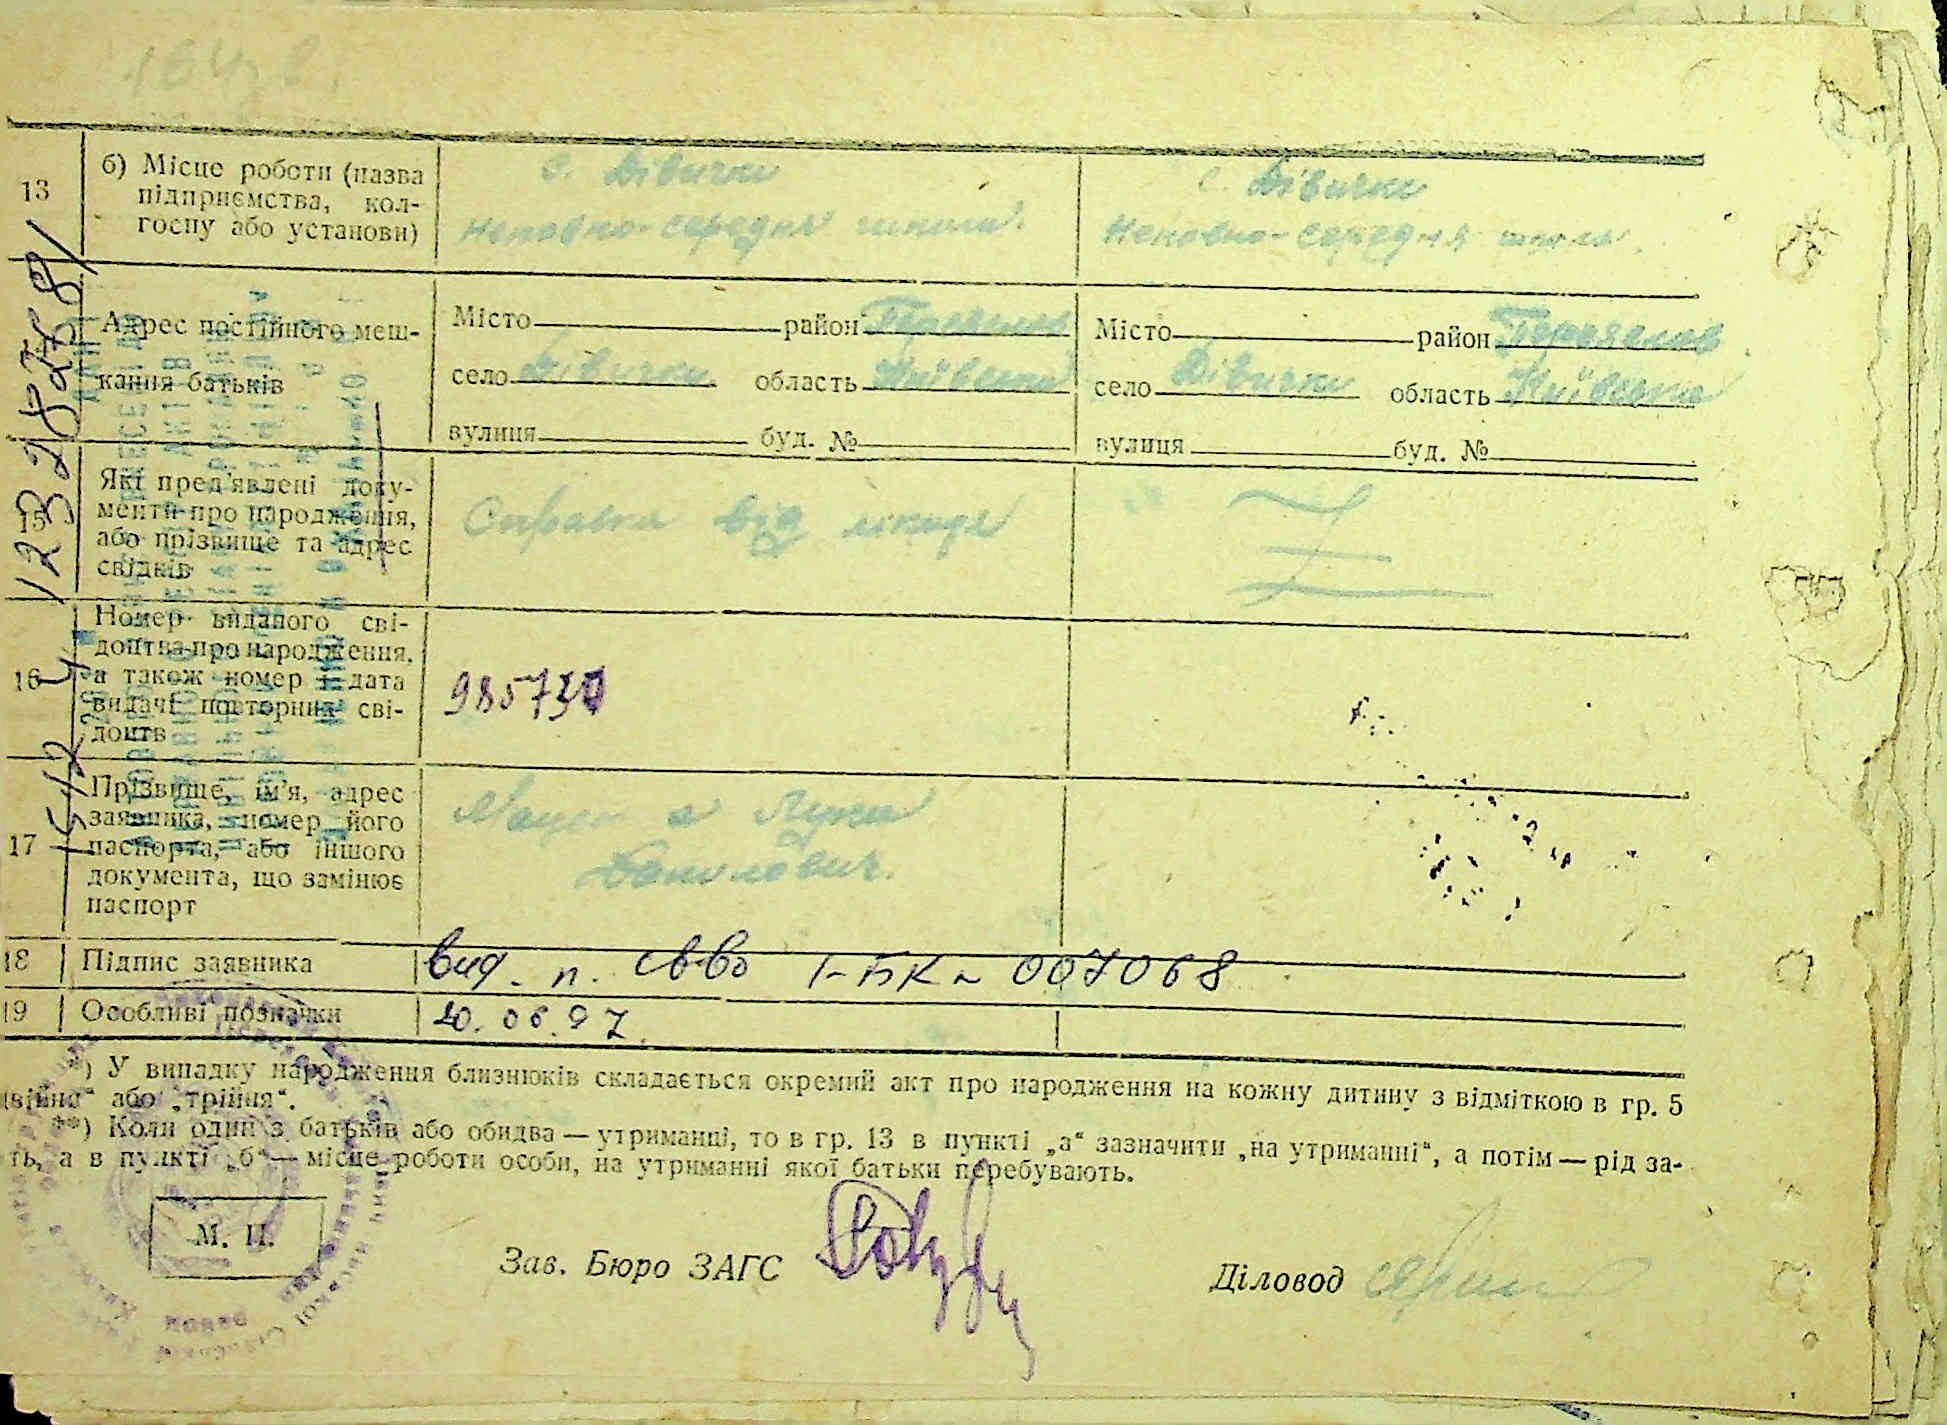 13
б) Місце роботи (назва
підприємства, кол-
госпу або установи)
с. Дівички
Неповно-середня школа.
с. Дівички
Неповно-середня школа.
Адрес постійного меш-
кання батьків
Місто район Переяслав
село Дівички область Київська
вулиця буд. №
Місто район Переяслав
село Дівички область Київська
вулиця буд. №
15
Які пред'явлені доку-
менти про народження,
або прізвище та адрес
свідків
Справка від лікаря
16
Номер виданого сві-
доцтва про народження,
а також номер і дата
видачі повторних сві-
доцтв
985730
17
Прізвище, ім'я, адрес
заявника, номер його
паспорта, або іншого
документа, що замінює
паспорт
Лука
Данилович.
18
Підпис заявника
вид. п. св-во І-БК № 007068
19
Особливі позначки
20.06.97
*) У випадку народження близнюків складається окремий акт про народження на кожну дитину з відміткою в гр. 5
„двійня“ або „трійня“.
**) Коли один з батьків або обидва — утриманці, то в гр. 13 в пункті „а“ зазначити „на утриманні“, а потім — рід за-
ть, а в пункті „б“ — місце роботи особи, на утриманні якої батьки перебувають.
М. П.
Зав. Бюро ЗАГС
Діловод